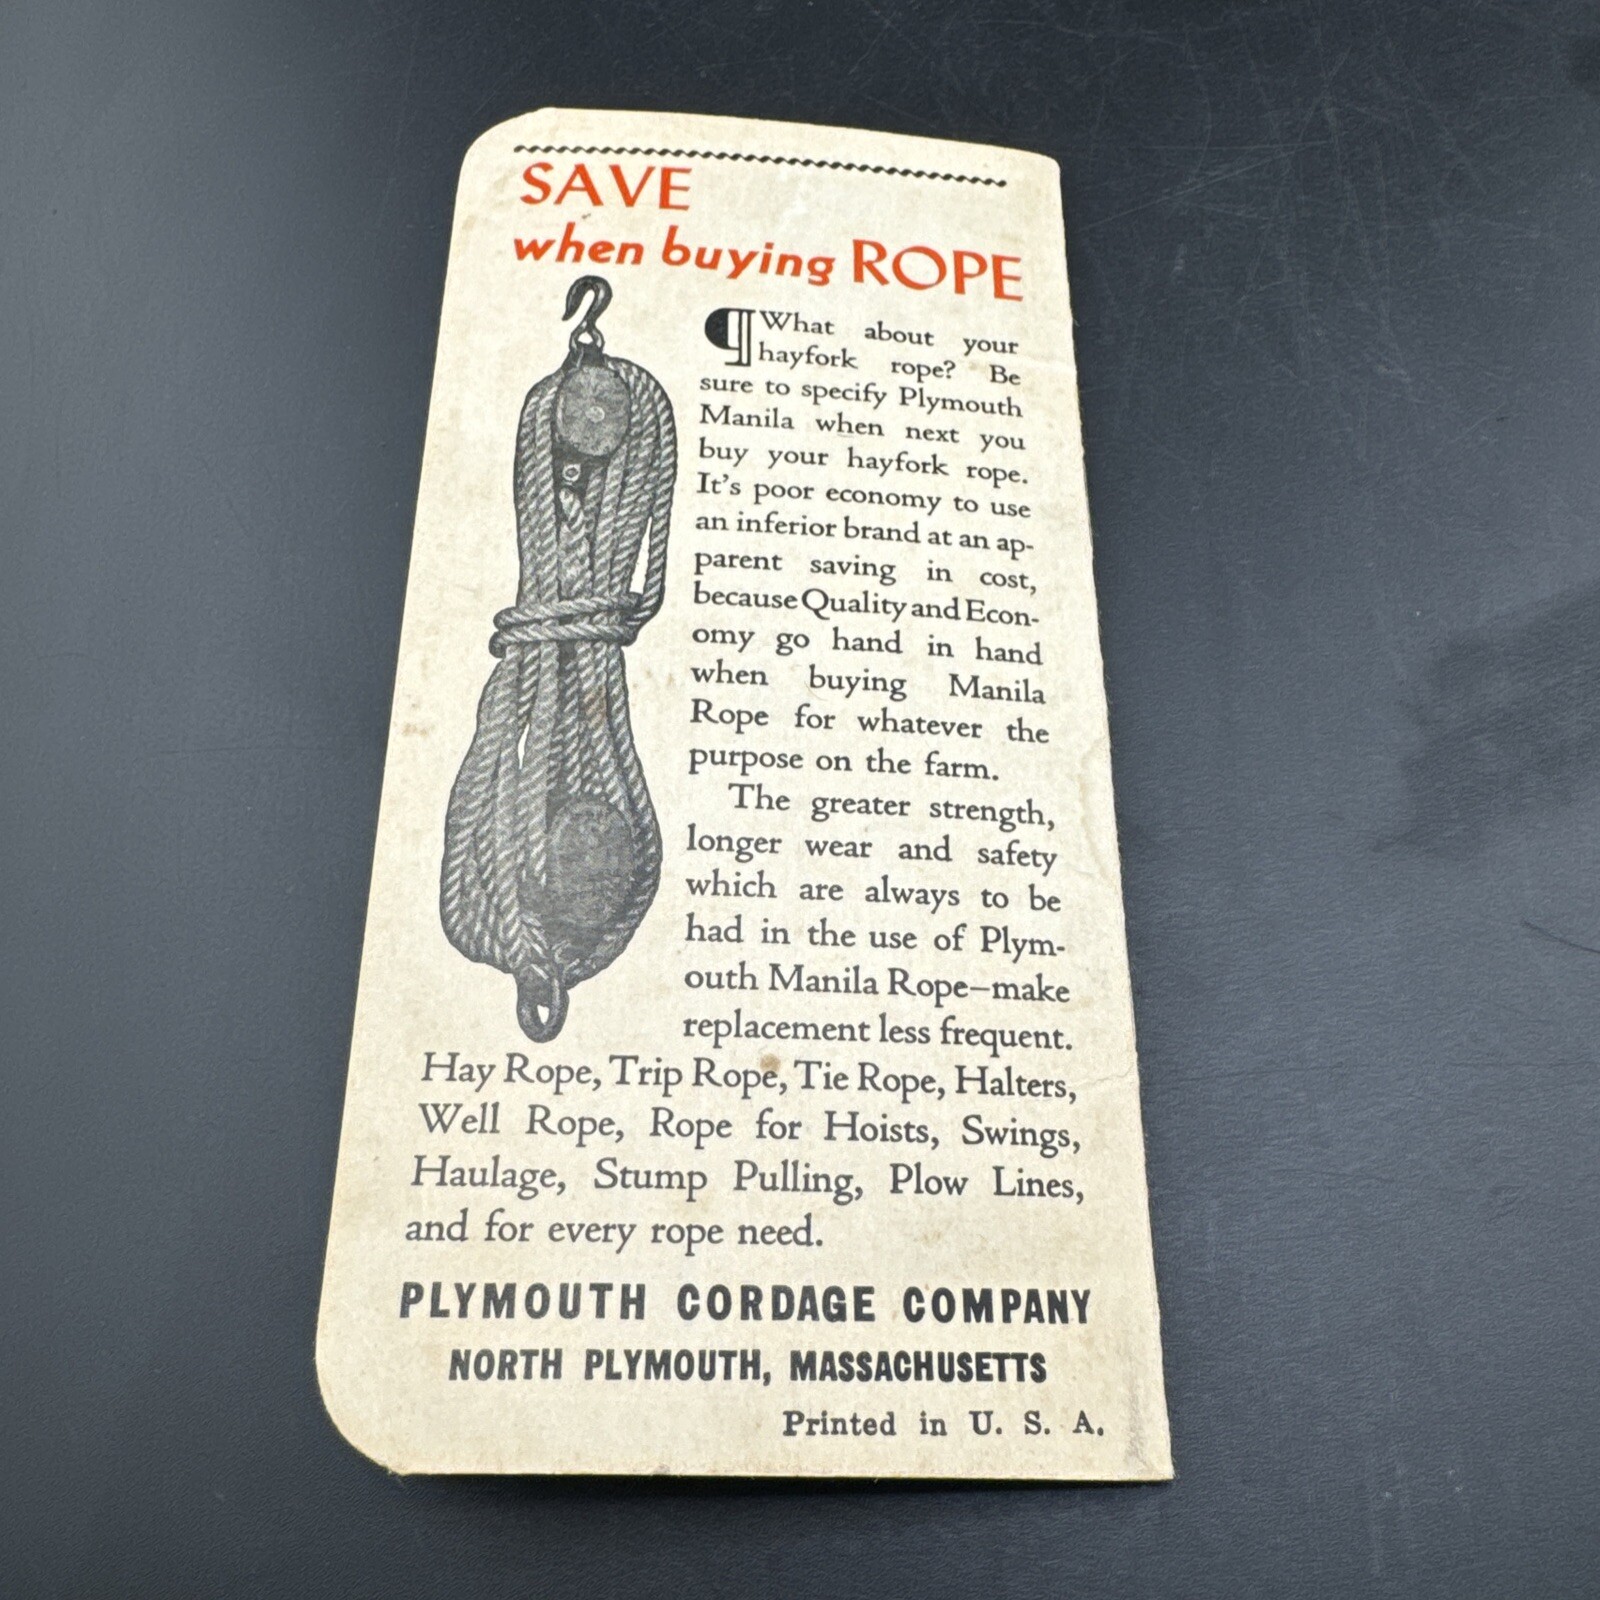 SAVE
when buying ROPE
¶What about your
hayfork rope? Be
sure to specify Plymouth
Manila when next you
buy your hayfork rope.
It's poor economy to use
an inferior brand at an ap-
parent saving in cost,
because Quality and Econ-
omy go hand in hand
when buying Manila
Rope for whatever the
purpose on the farm.
The greater strength,
longer wear and safety
which are always to be
had in the use of Plym-
outh Manila Rope—make
replacement less frequent.
Hay Rope, Trip Rope, Tie Rope, Halters,
Well Rope, Rope for Hoists, Swings,
Haulage, Stump Pulling, Plow Lines,
and for every rope need.
PLYMOUTH CORDAGE COMPANY
NORTH PLYMOUTH, MASSACHUSETTS
Printed in U. S. A.